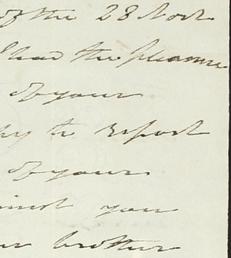 of the 28 Novr
I had the pleasure
of your
to report
of your
you
brother